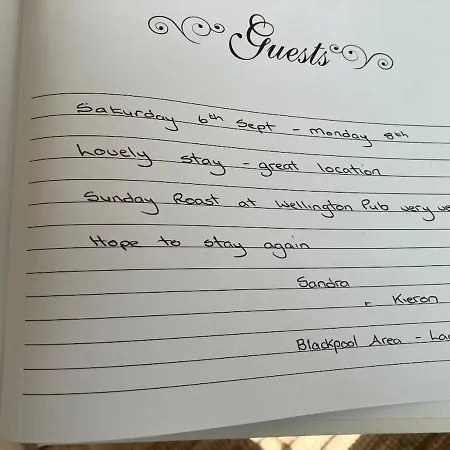 Guests
Saturday 6th Sept - Monday 8th
Lovely stay - great location
Sunday Roast at Wellington Pub very
Hope to stay again
Sandra
Kieron
Blackpool Area -